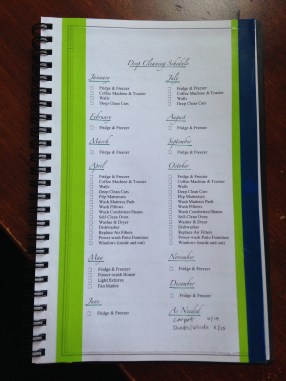 Deep Cleaning Schedule
January
Fridge & Freezer
Coffee Machine & Toaster
Walls
Deep Clean Cars
February
Fridge & Freezer
March
Fridge & Freezer
April
Fridge & Freezer
Coffee Machine & Toaster
Walls
Deep Clean Cars
Flip Mattresses
Wash Mattress Pads
Wash Pillows
Wash Comforters/Shams
Self-Clean Oven
Washer & Dryer
Dishwasher
Replace Air Filters
Power-wash Patio Furniture
Windows (inside and out)
May
Fridge & Freezer
Power-wash House
Light Fixtures
Fan Blades
June
Fridge & Freezer
July
Fridge & Freezer
Coffee Machine & Toaster
Walls
Deep Clean Cars
August
Fridge & Freezer
September
Fridge & Freezer
October
Fridge & Freezer
Coffee Machine & Toaster
Walls
Deep Clean Cars
Flip Mattresses
Wash Mattress Pads
Wash Pillows
Wash Comforters/Shams
Self-Clean Oven
Washer & Dryer
Dishwasher
Replace Air Filters
Power-wash Patio Furniture
Windows (inside and out)
November
Fridge & Freezer
December
Fridge & Freezer
As Needed
Carpet